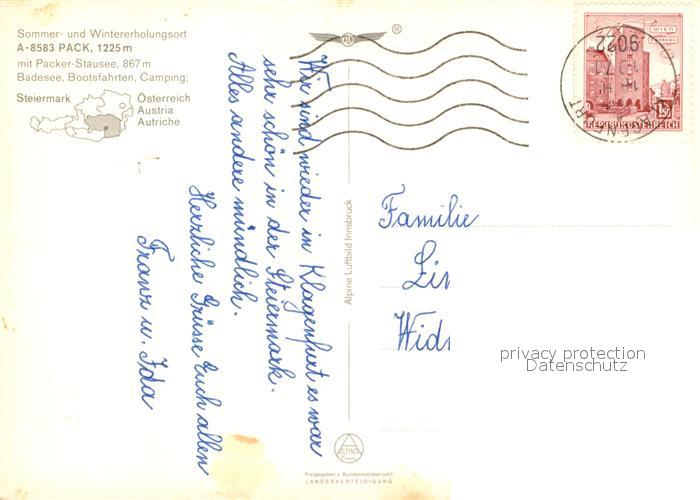 Sommer- und Wintererholungsort
A-8583 PACK, 1225 m
mit Packer-Stausee, 867 m
Badesee, Bootsfahrten, Camping;
Steiermark
Österreich
Austria
Autriche
Wir sind wieder in Klagenfurt es war
sehr schön in der Steiermark.
Alles andere mündlich.
Herzliche Grüsse Euch allen
Franz u. Ida
Alpine Luftbild Innsbruck
®
WIEN
9022
REPUBLIK ÖSTERREICH
Familie
Lin
Wids
privacy protection
Datenschutz
ALPINE
Freigegeben v. Bundesministerium f.
LANDESVERTEIDIGUNG